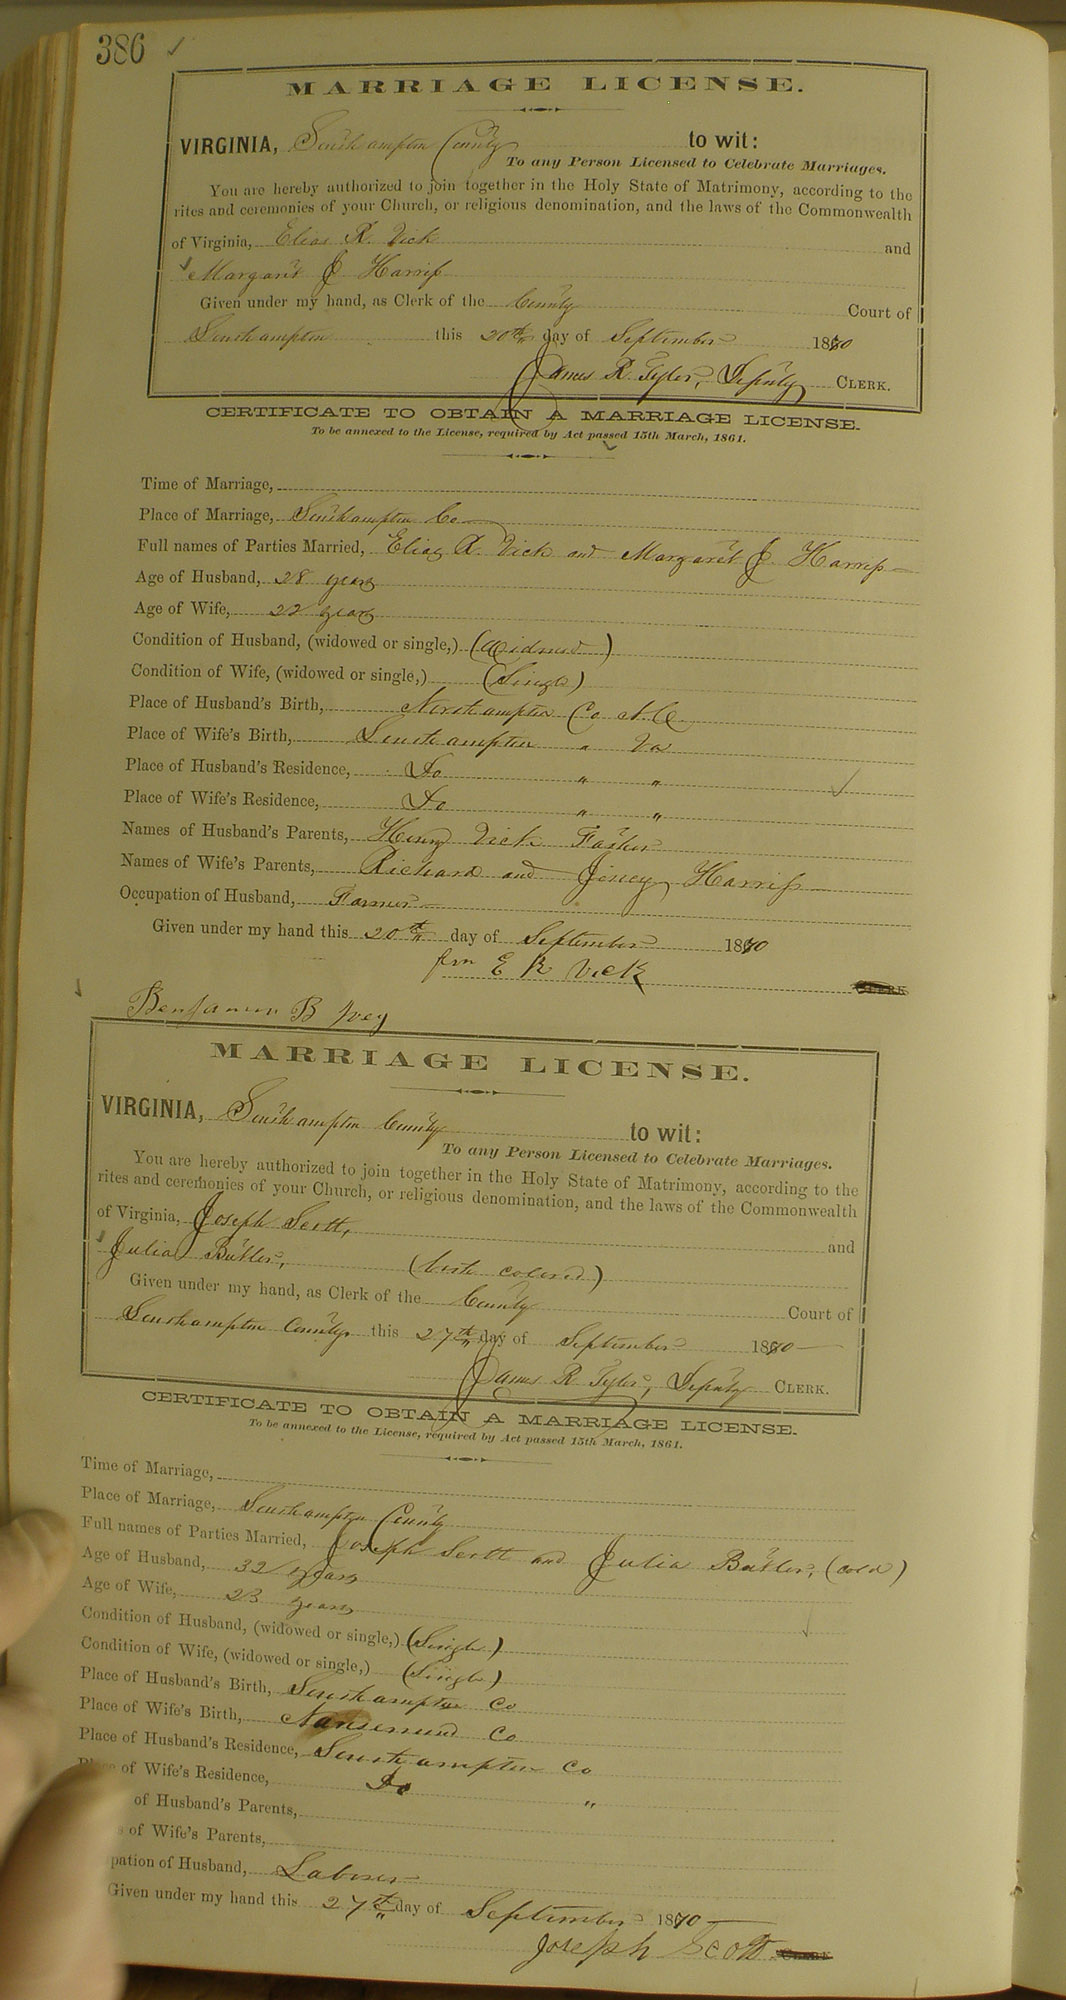 386 ✓
MARRIAGE LICENSE.
VIRGINIA, Southampton County to wit:
To any Person Licensed to Celebrate Marriages.
You are hereby authorized to join together in the Holy State of Matrimony, according to the
rites and ceremonies of your Church, or religious denomination, and the laws of the Commonwealth
of Virginia, Elias R. Vick and
✓ Margaret J Harriss
Given under my hand, as Clerk of the County Court of
Southampton this 20th day of September 1870
James R. Tyler, Deputy CLERK.
CERTIFICATE TO OBTAIN A MARRIAGE LICENSE.
To be annexed to the License, required by Act passed 15th March, 1861.
Time of Marriage,
Place of Marriage, Southampton Co
Full names of Parties Married, Elias R. Vick and Margaret J. Harriss
Age of Husband, 28 years
Age of Wife, 22 years
Condition of Husband, (widowed or single,) (Widowed)
Condition of Wife, (widowed or single,) (Single)
Place of Husband's Birth, Northampton Co N.C.
Place of Wife's Birth, Southampton " Va
Place of Husband's Residence, Do " "
Place of Wife's Residence, Do " "
Names of Husband's Parents, Henry Vick Father
Names of Wife's Parents, Richard and Jincy Harriss
Occupation of Husband, Farmer
Given under my hand this 20th day of September 1870
E R Vick CLERK
Benjamin B Ivey
MARRIAGE LICENSE.
VIRGINIA, Southampton County to wit:
To any Person Licensed to Celebrate Marriages.
You are hereby authorized to join together in the Holy State of Matrimony, according to the
rites and ceremonies of your Church, or religious denomination, and the laws of the Commonwealth
of Virginia, Joseph Scott, and
Julia Butler, (both colored)
Given under my hand, as Clerk of the County Court of
Southampton County this 27th day of September 1870
James R Tyler, Deputy CLERK.
CERTIFICATE TO OBTAIN A MARRIAGE LICENSE.
To be annexed to the License, required by Act passed 15th March, 1861.
Time of Marriage,
Place of Marriage, Southampton County
Full names of Parties Married, Joseph Scott and Julia Butler, (cold)
Age of Husband, 32 years
Age of Wife, 23 years
Condition of Husband, (widowed or single,) (Single)
Condition of Wife, (widowed or single,) (Single)
Place of Husband's Birth, Southampton Co
Place of Wife's Birth, Nansemond Co
Place of Husband's Residence, Southampton Co
of Wife's Residence, Do "
of Husband's Parents,
of Wife's Parents,
pation of Husband, Laborer
Given under my hand this 27th day of September 1870
Joseph Scott CLERK